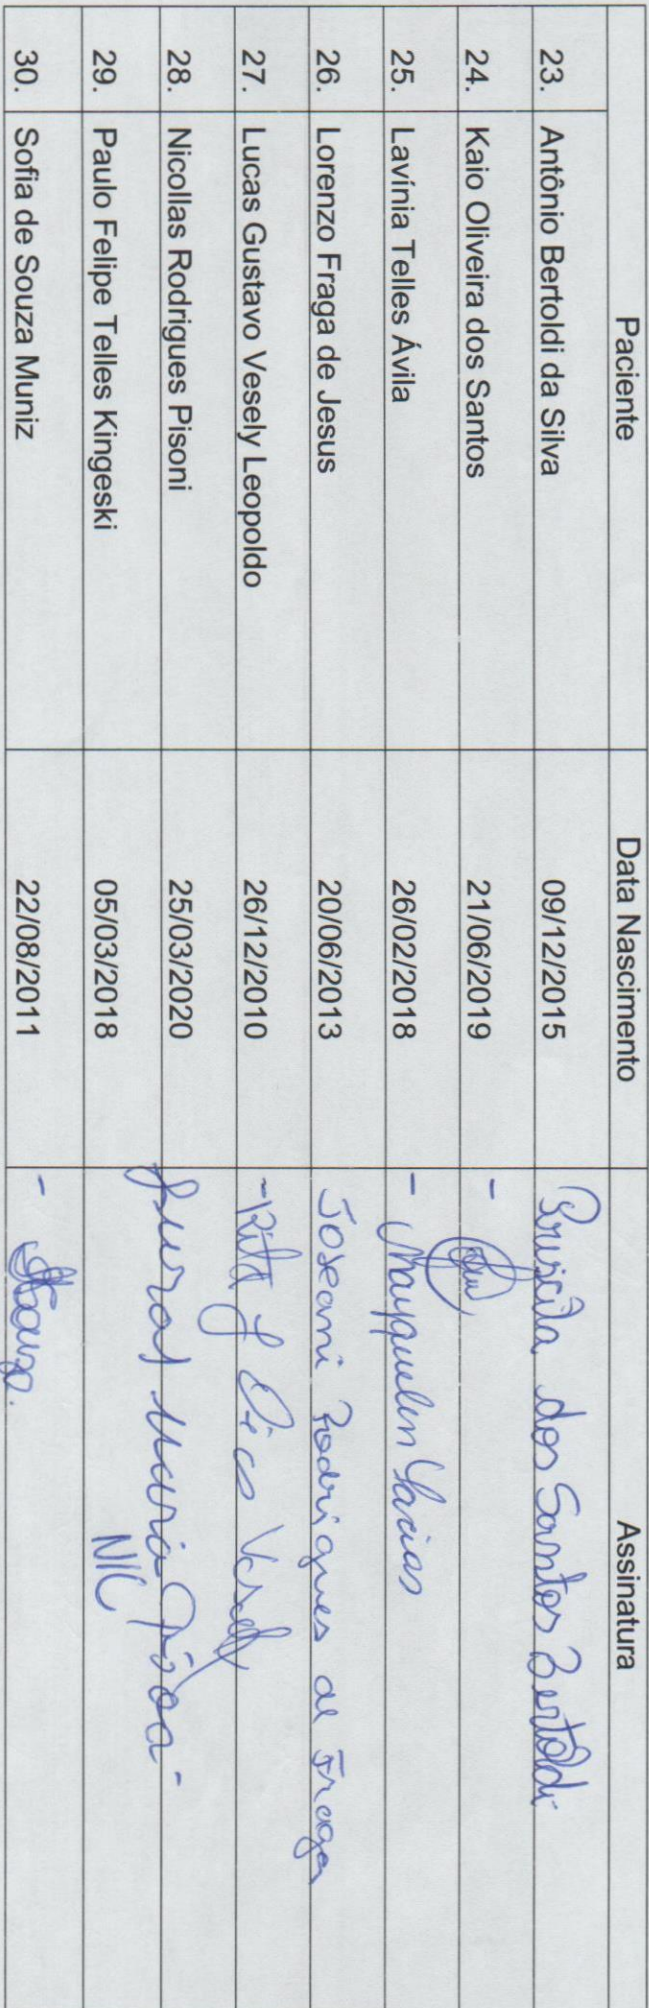 Paciente Data Nascimento Assinatura
23. Antônio Bertoldi da Silva 09/12/2015 Priscila dos Santos Bertoldi
24. Kaio Oliveira dos Santos 21/06/2019 -
25. Lavínia Telles Ávila 26/02/2018 -
26. Lorenzo Fraga de Jesus 20/06/2013 Joseani Rodrigues de Fraga
27. Lucas Gustavo Vesely Leopoldo 26/12/2010 - Rita
28. Nicollas Rodrigues Pisoni 25/03/2020 Maria
29. Paulo Felipe Telles Kingeski 05/03/2018 N/C
30. Sofia de Souza Muniz 22/08/2011 -